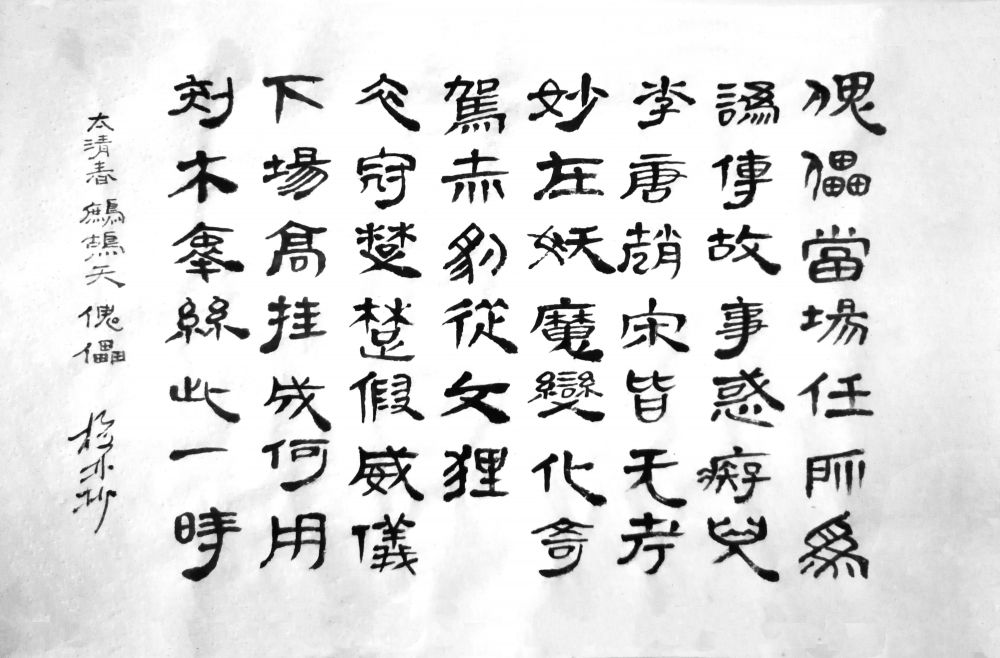 傀儡當場任所為
譌傳故事惑痴兒
李唐趙宋皆无考
妙在妖魔變化奇
駕赤豹從文狸
衣冠楚楚假威儀
下場高挂成何用
刻木牽絲此一時
太清春 鷓鴣天 傀儡 抄